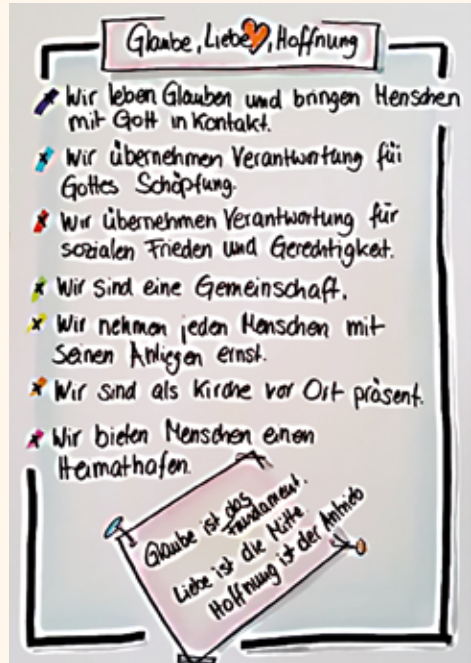 Glaube, Liebe, Hoffnung
Wir leben Glauben und bringen Menschen
mit Gott in Kontakt.
Wir übernehmen Verantwortung für
Gottes Schöpfung.
Wir übernehmen Verantwortung für
sozialen Frieden und Gerechtigkeit.
Wir sind eine Gemeinschaft.
Wir nehmen jeden Menschen mit
Seinen Anliegen ernst.
Wir sind als Kirche vor Ort präsent.
Wir bieten Menschen einen
Heimathafen.
Glaube ist das
Fundament.
Liebe ist die Mitte.
Hoffnung ist der Antrieb